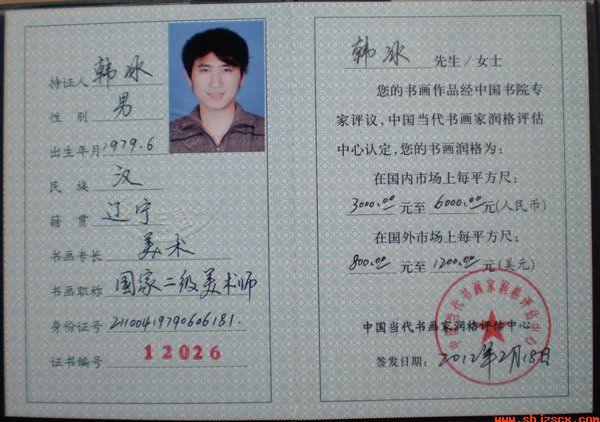 持证人 韩冰
性 别 男
出生年月 1979.6
民 族 汉
籍 贯 辽宁
书画专长 美术
书画职称 国家二级美术师
身份证号 21100419790606181.
证书编号 12026
韩冰 先生/女士
您的书画作品经中国书院专
家评议，中国当代书画家润格评估
中心认定，您的书画润格为：
在国内市场上每平方尺：
3000.00 元至 6000.00 元(人民币)
在国外市场上每平方尺：
800.00 元至 1200.00 元(美元)
中国当代书画家润格评估中心
中国当代书画家润格评估中心
签发日期： 2012年2月18日
www.shjzscx.com